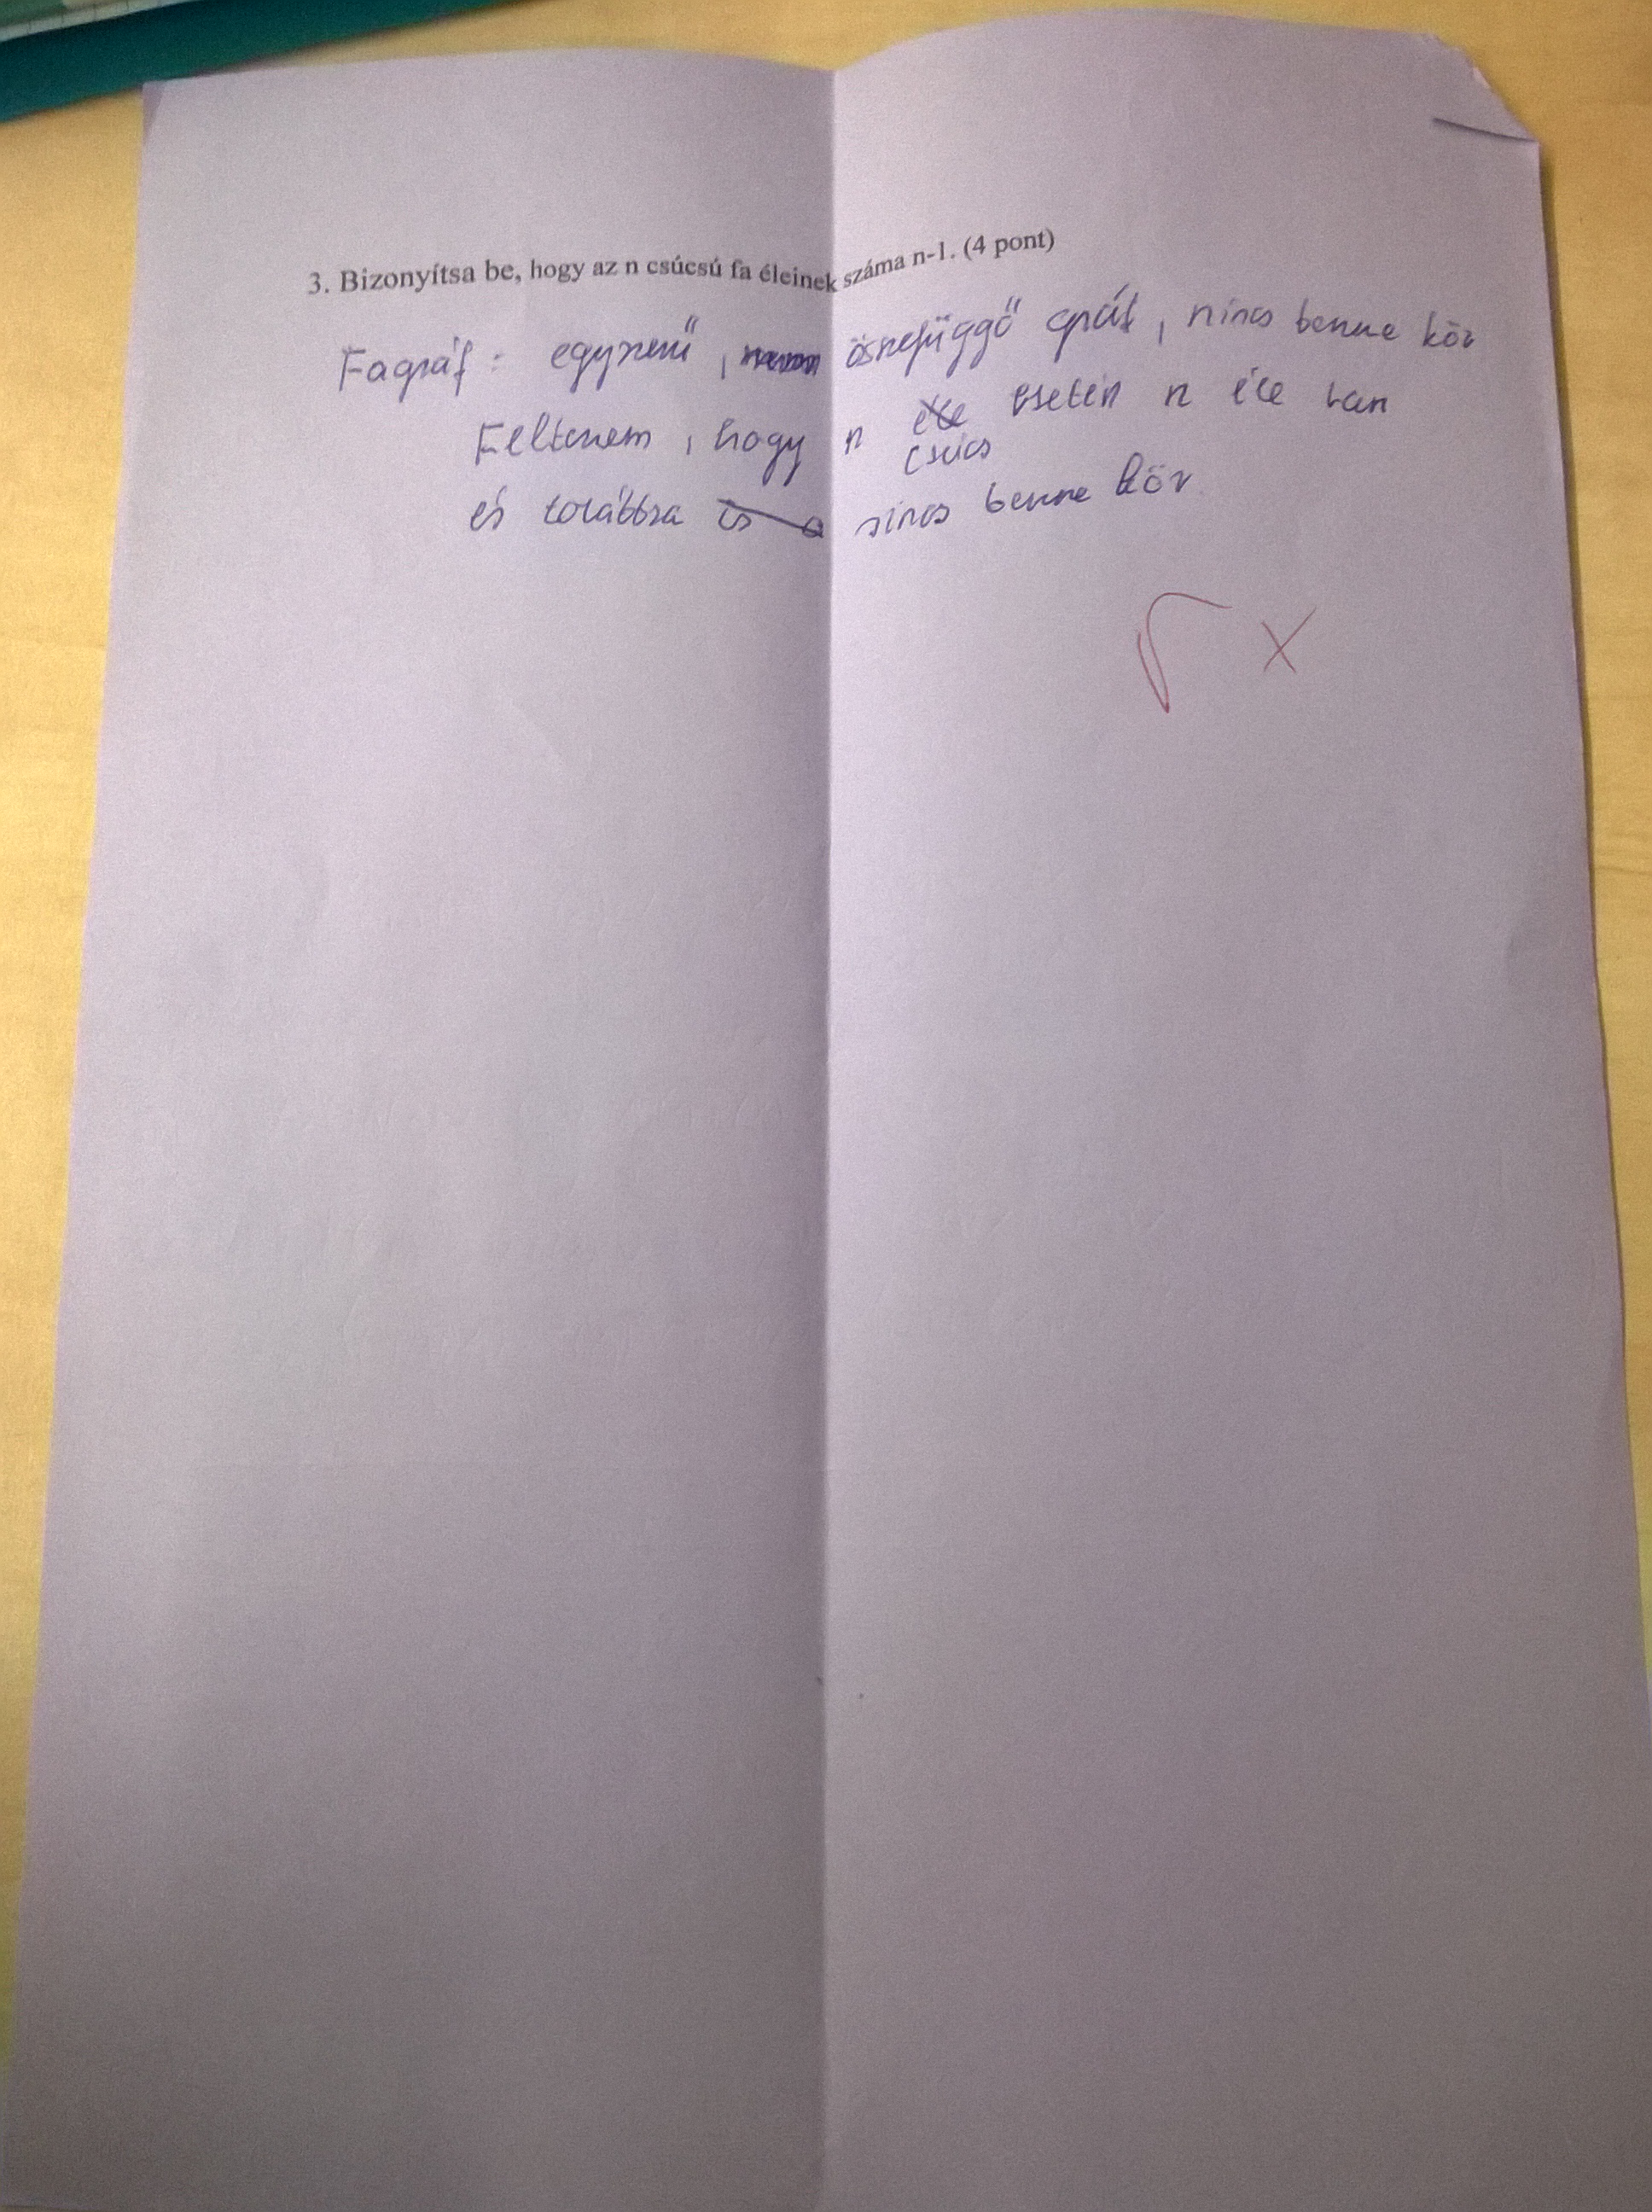 3. Bizonyítsa be, hogy az n csúcsú fa éleinek száma n-1. (4 pont)
Fagráf: egyszerű, összefüggő gráf, nincs benne kör
Feltenem, hogy n éle esetén n éle van
csúcs
és továbbra is a nincs benne kör.